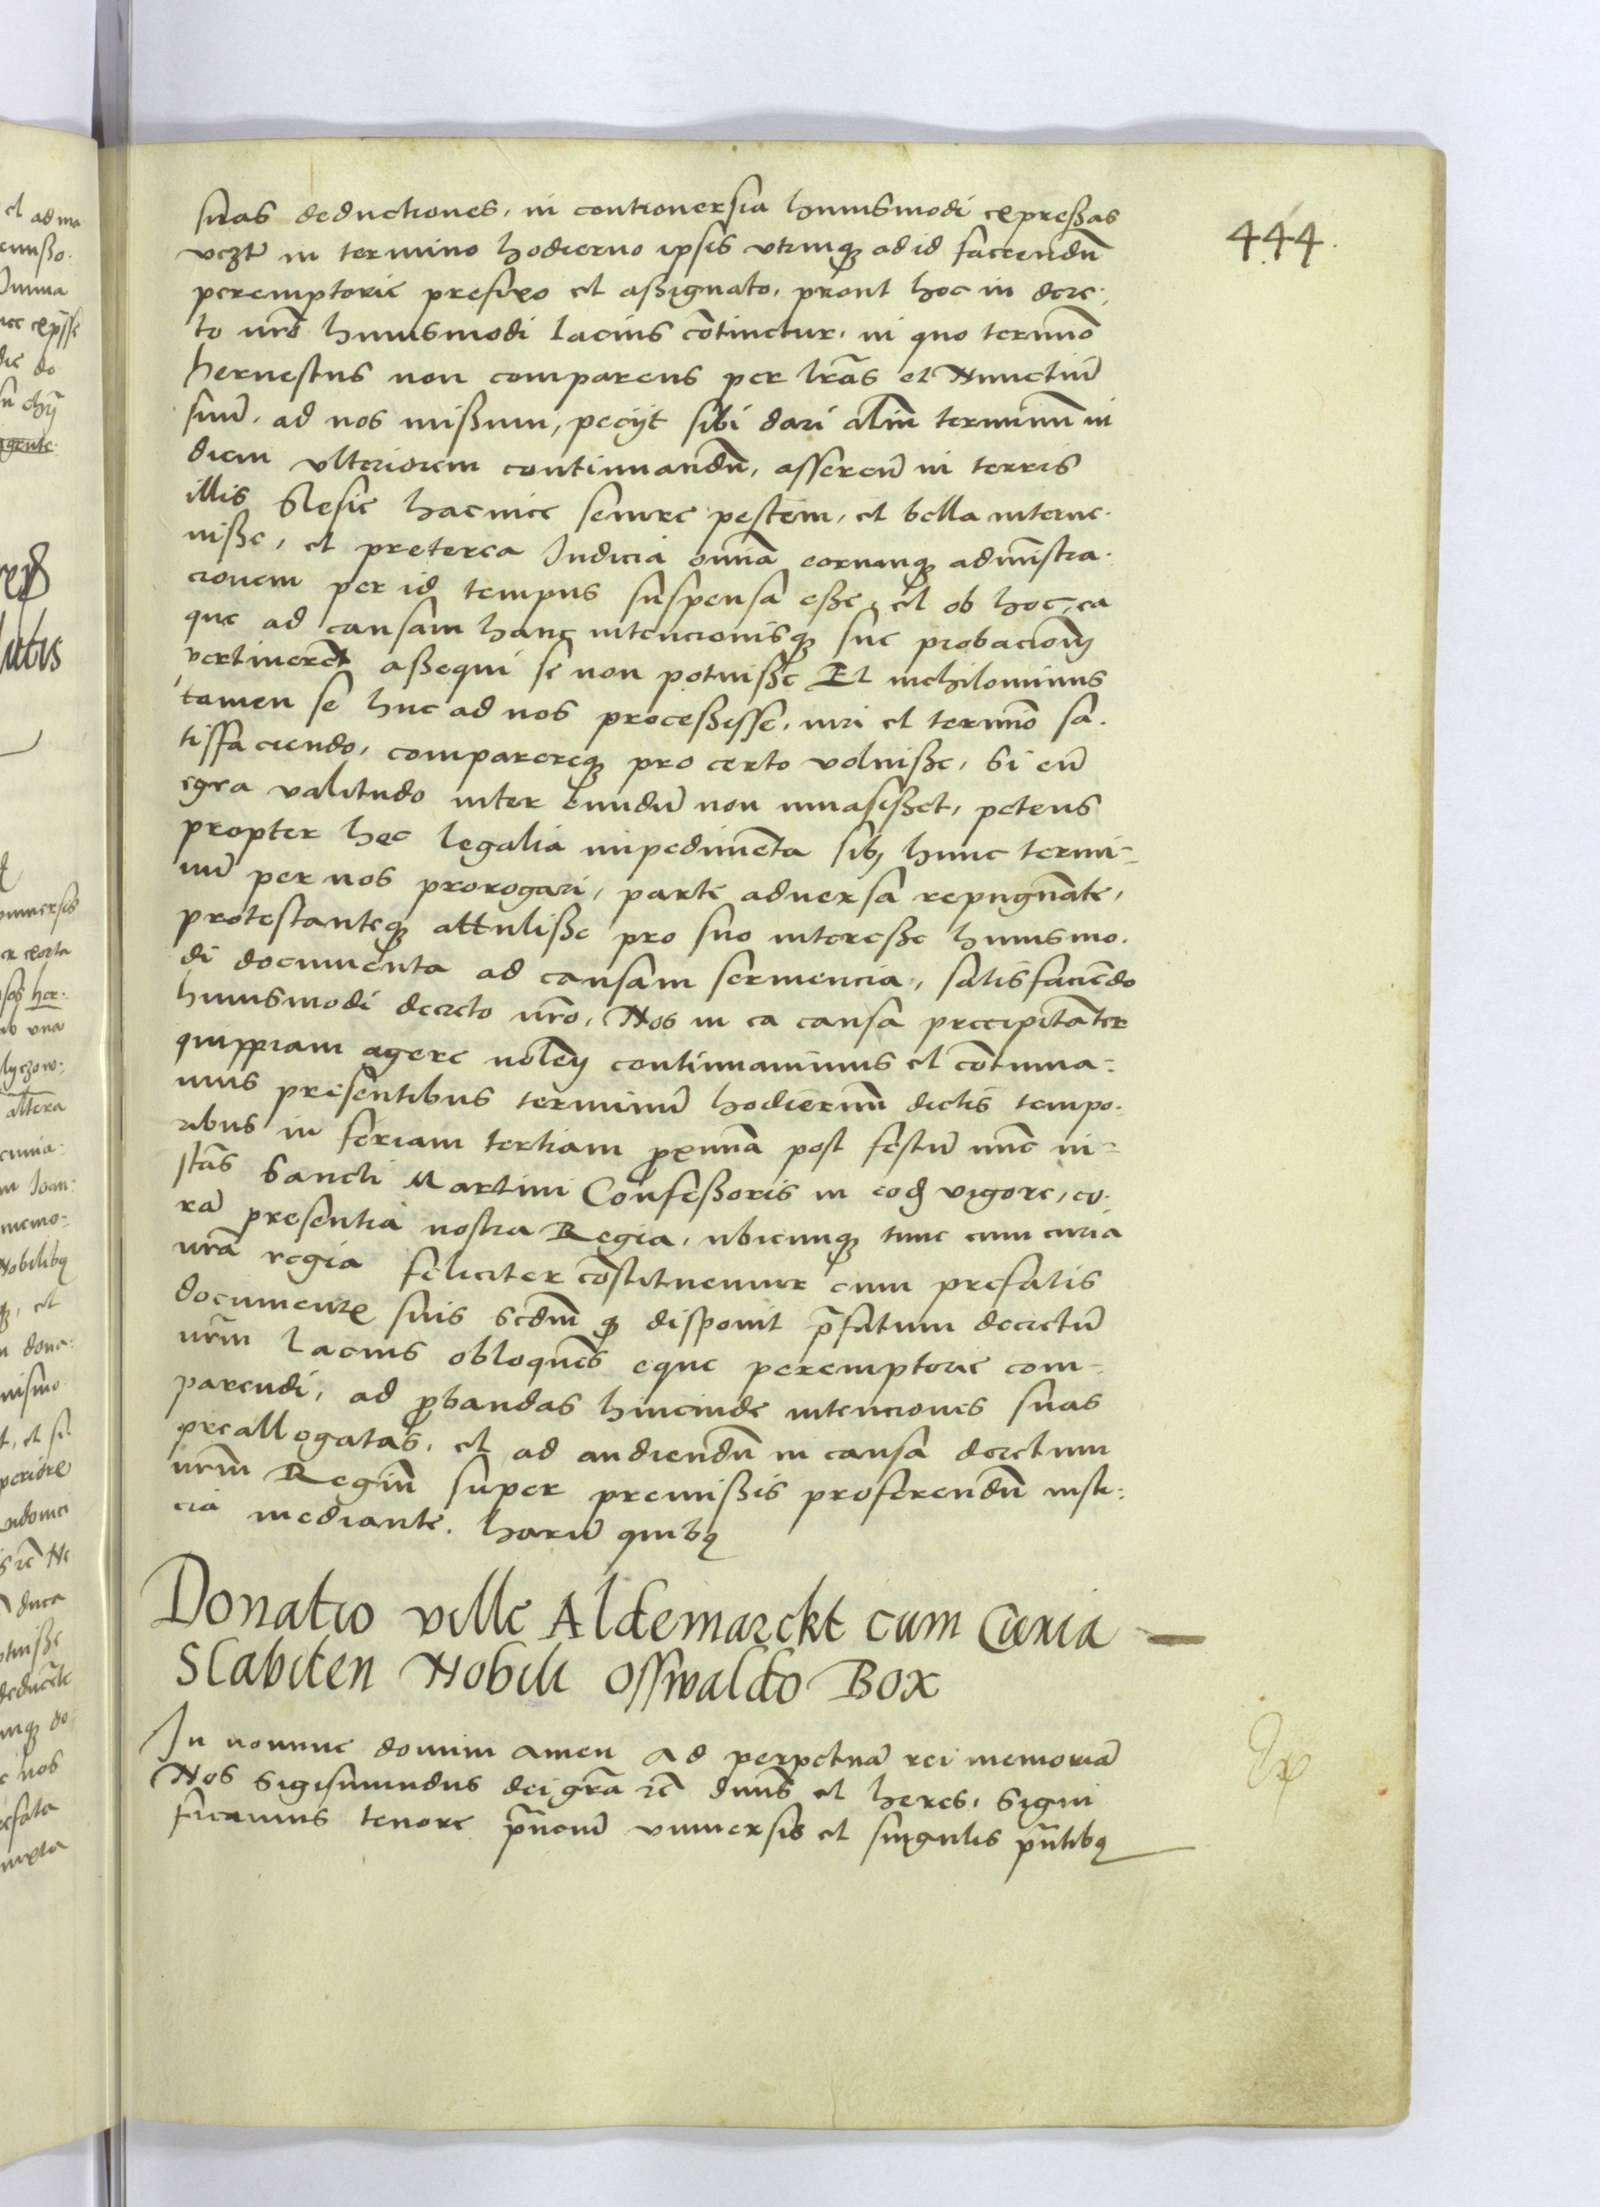 444.
suas deductiones, in controuersia huiusmodi expressas
vczt in termino hodierno ipsis vtrinq3 ad id faciendũ
peremptorie prefixo et assignato, prout hoc in decre-
to nr̃o huiusmodi lacius cõtinetur, in quo termĩo
hernestus non comparens per lr̃as et Nunctiũ
suũ, ad nos missum, peciit sibi dari aliũ terminũ in
diem vlteriorem continuandũ, asserens in terris
illis Slesie hacnice seuire pestem, et bella interue-
nisse, et preterea Iudicia omĩa eorumq3 admĩstra-
cionem per id tempus suspensa esse, et ob hoc, ea
que ad causam hanc intencionisq3 sue probacionẽ
pertinerẽt assequi se non potuisse Et nichilominus
tamen se huc ad nos processisse, iuri et termĩo sa-
tissfaciendo, comparereq3 pro certo voluisse, Si eũ
egra valitudo inter eundũ non inuasisset, petens
propter hec legalia impedimẽta sibi hunc termi-
nũ per nos prorogari, parte aduersa repugnãte,
protestanteq3 attulisse pro suo interesse huiusmo-
di documenta ad causam seruiencia, satisfaciẽdo
huiusmodi decreto nr̃o, Nos in ea causa precipitãter
quippiam agere nolẽtes continuauimus et cõtinua-
mus presentibus terminũ hodiernũ dictis tempo-
ribus in feriam tertiam proximã post festũ nũc in-
stãs Sancti Martini Confessoris in eod vigore, co-
rã presentia nostra Regia, vbicunq3 tunc cum curia
nr̃a regia feliciter cõstituemur cum prefatis
documentis suis scdm q3 disponit p̃fatum decretũ
nr̃m lacius obloquẽs eque peremptorie com-
parendi, ad probandas hincinde intenciones suas
preallegatas, et ad audiendũ in causa decretum
nr̃m Regiũ super premissis proferendũ iusti-
cia mediante. harũ quibq
Donatio ville Aldemarckt cum Curia
Slabiten Nobili Osswaldo Box
In nomine domini amen ad perpetuã rei memoriã
Nos Sigismundus dei gr̃a rc̃ dnũs et heres, Signi
ficamus tenore p̃nciũ vniuersis et singulis p̃ntibq